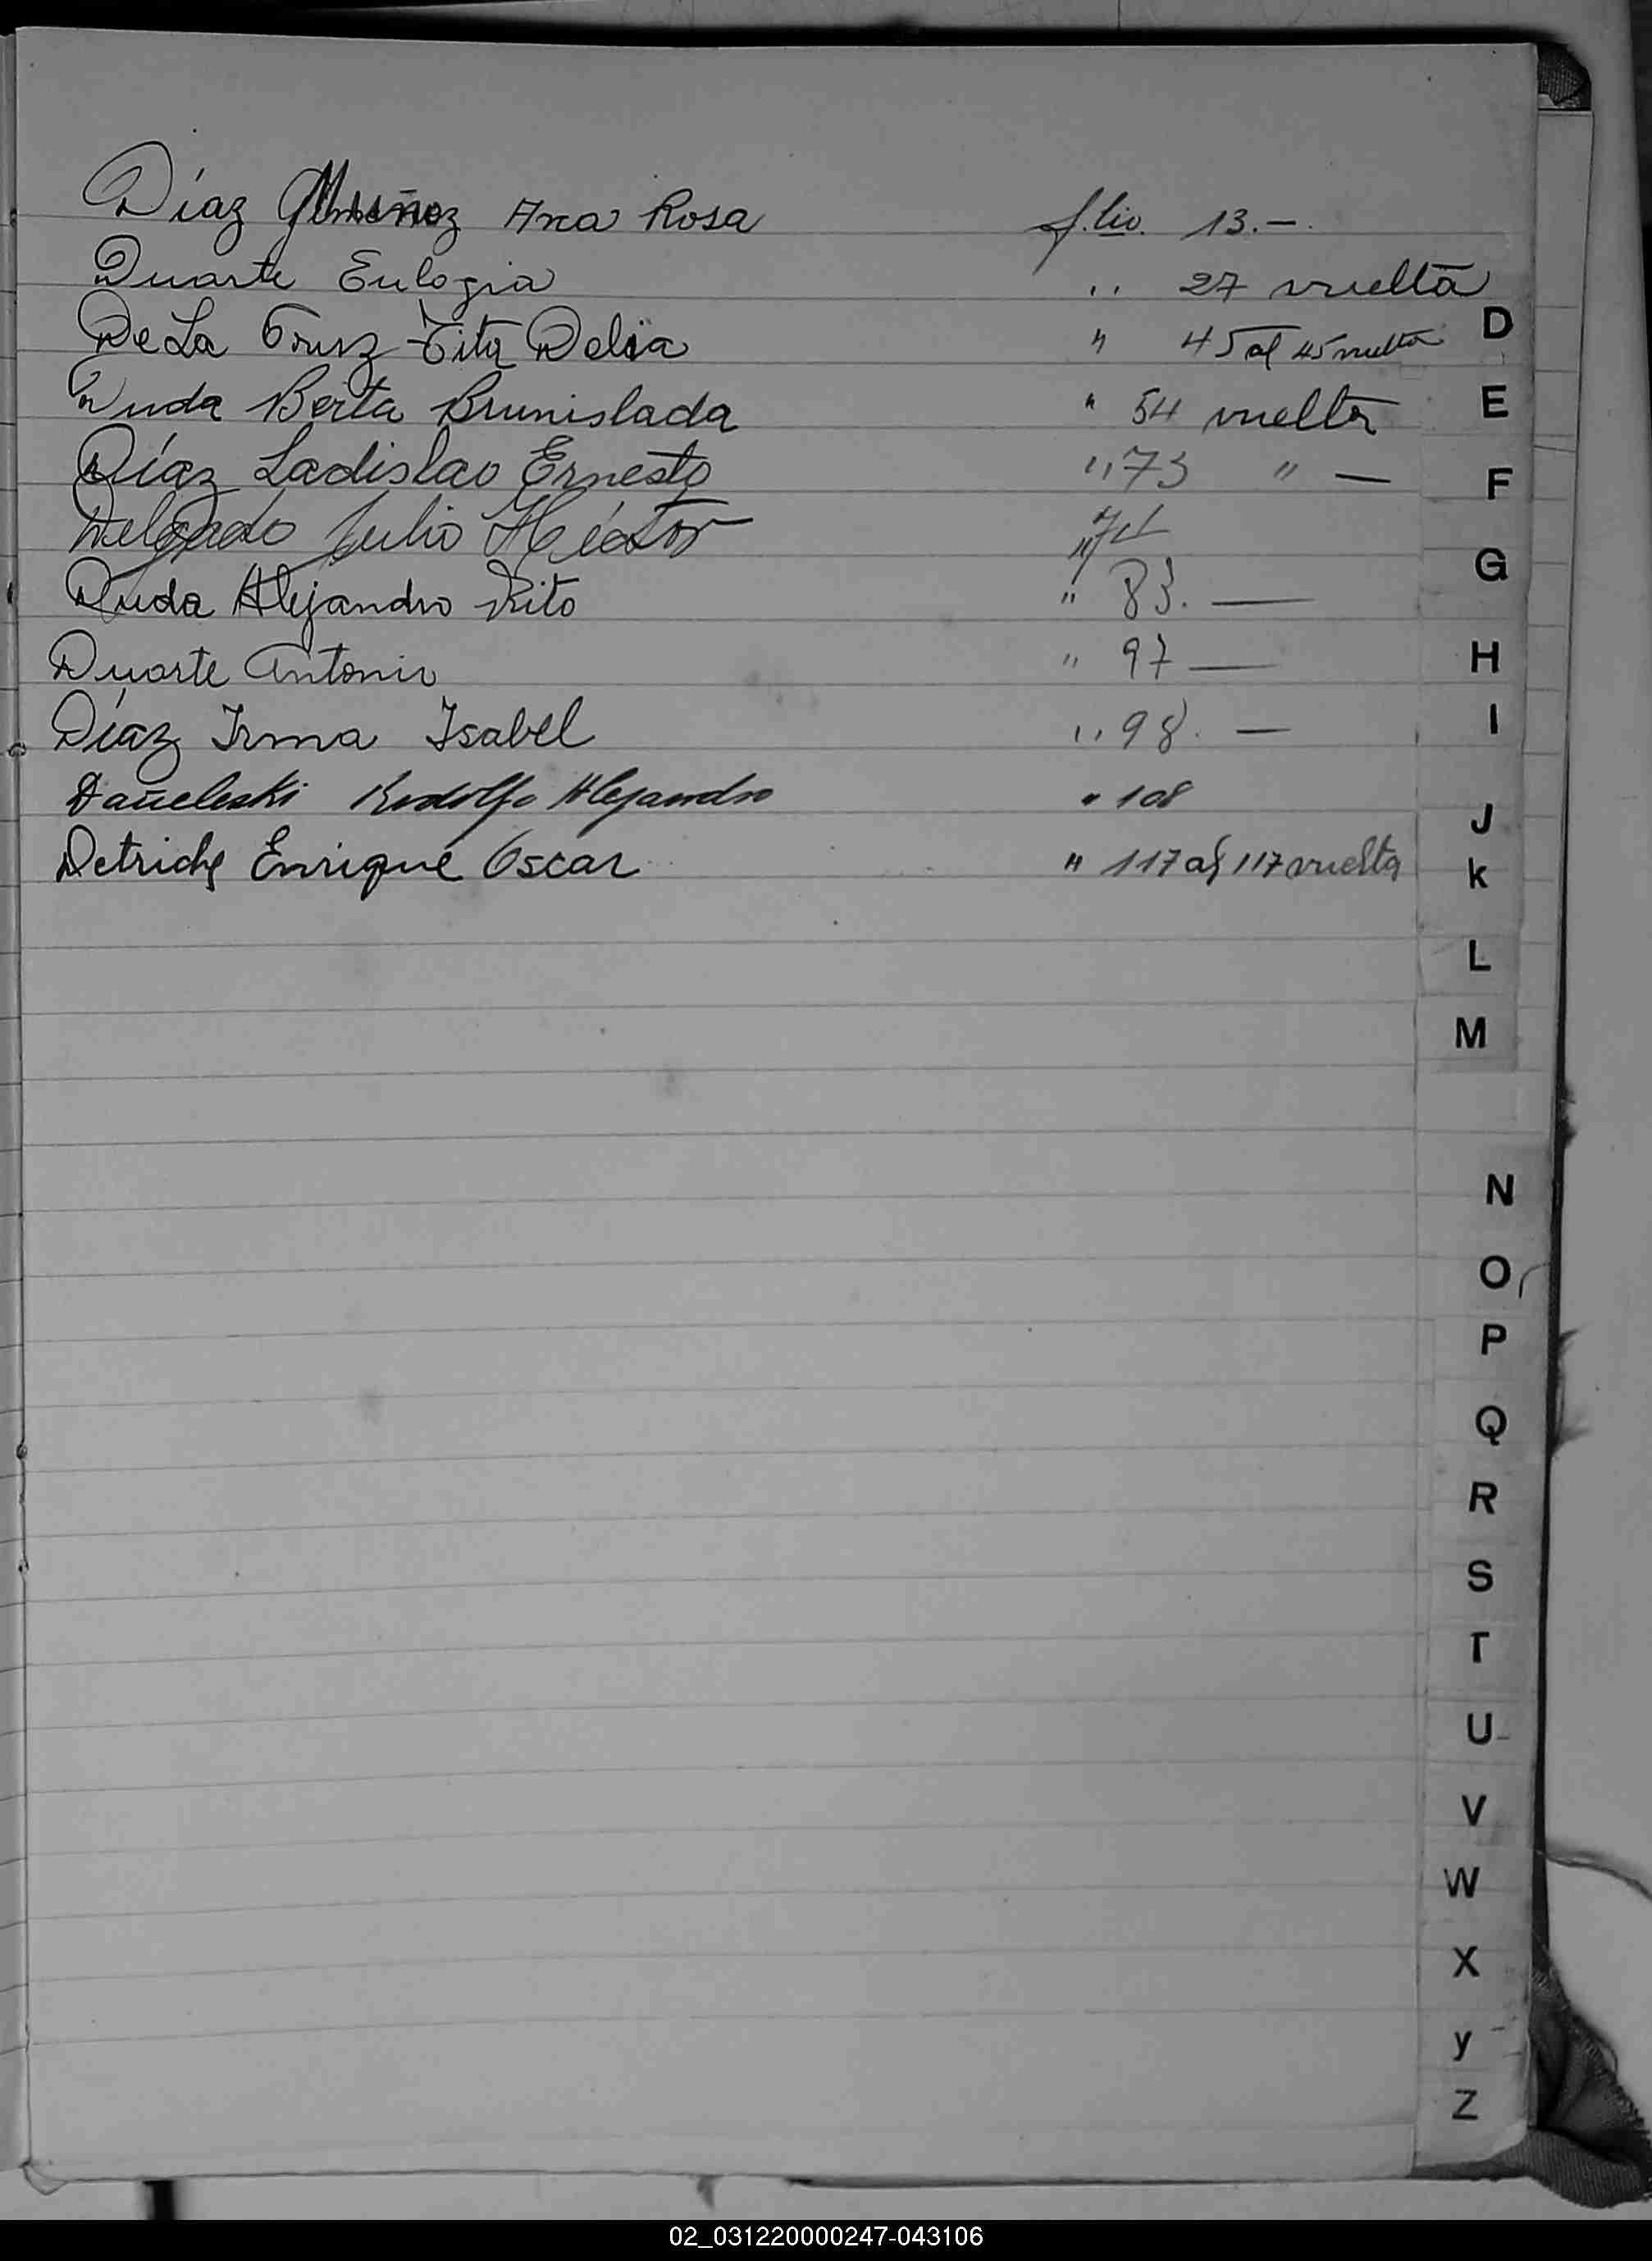 Díaz Muñoz Ana Rosa folio 13.-
Duarte Eulogia " 27 vuelta
De La Cruz Tita Delia " 45 al 45 vuelta
Duda Berta Brunislada " 54 vuelta
Díaz Ladislao Ernesto " 73 " —
Delgado Julio Héctor "
Duda Alejandro Rito " 83. —
Duarte Antonio " 97 —
Díaz Irma Isabel " 98. —
Dañeleski Rodolfo Alejandro " 108
Detriche Enrique Oscar " 117 al 117 vuelta
D
E
F
G
H
I
J
K
L
M
N
O
P
Q
R
S
T
U
V
W
X
y
Z
02_031220000247-043106